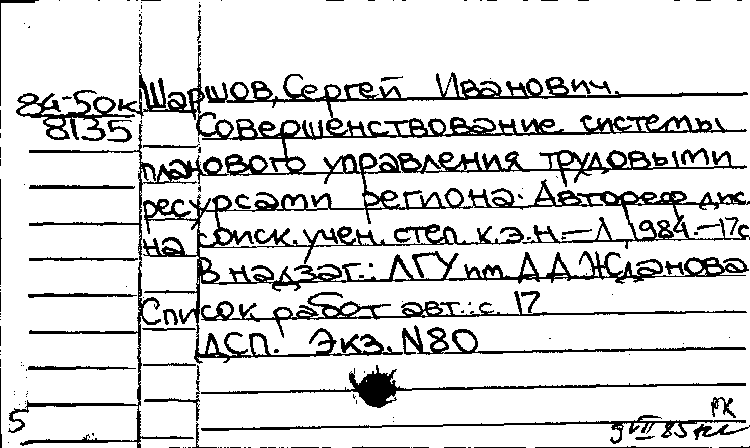 84-50к Шаршов, Сергей Иванович.
8135 Совершенствование системы
планового управления трудовыми
ресурсами региона. Автореф дис.
на соиск. учен. степ. к.э.н.—Л, 1984.—17с
В надзаг.: ЛГУ им А.А.Жданова
Список работ авт.: с. 17
ДСП. Экз. N80
РК
5 9 VII 85